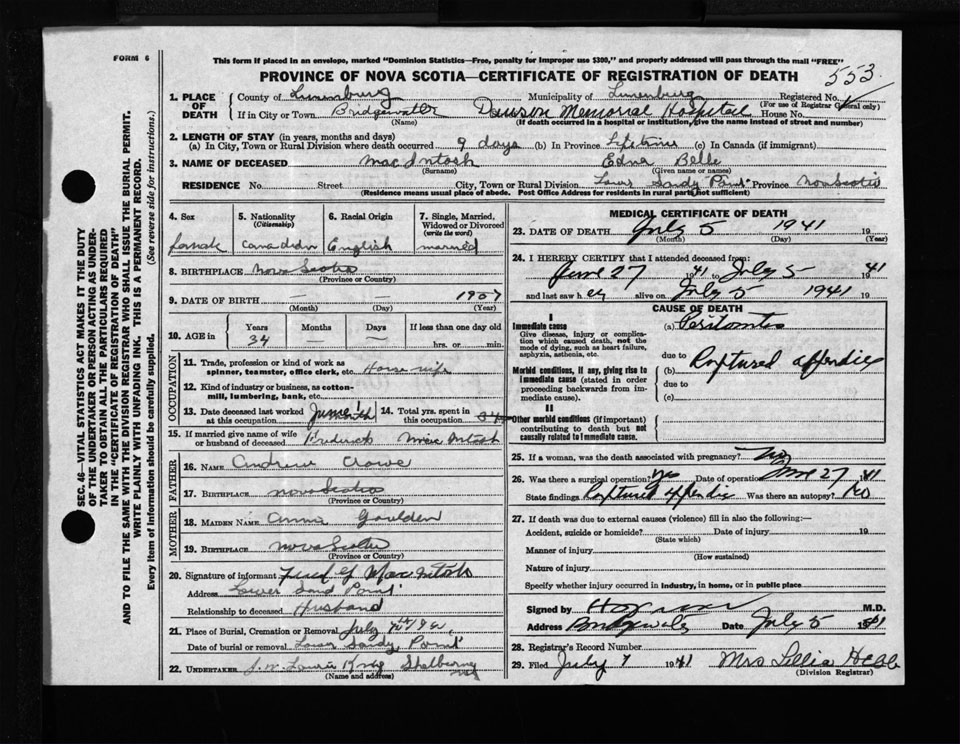 FORM 6
This form if placed in an envelope, marked "Dominion Statistics—Free, penalty for improper use $300," and properly addressed will pass through the mail "FREE"
PROVINCE OF NOVA SCOTIA—CERTIFICATE OF REGISTRATION OF DEATH
553
1. PLACE OF DEATH
County of Lunenburg Municipality of Lunenburg Registered No.
(For use of Registrar General only)
If in City or Town Bridgewater Dawson Memorial Hospital House No.
(Name) (If death occurred in a hospital or institution, give the name instead of street and number)
2. LENGTH OF STAY (in years, months and days)
(a) In City, Town or Rural Division where death occurred 9 days (b) In Province Lifetime (c) In Canada (if immigrant)
3. NAME OF DECEASED MacIntosh Edna Belle
(Surname) (Given name or names)
RESIDENCE No. Street City, Town or Rural Division Lower Sandy Point Province Nova Scotia
(Residence means usual place of abode. Post Office Address for residents in rural parts not sufficient)
4. Sex 5. Nationality (Citizenship) 6. Racial Origin 7. Single, Married, Widowed or Divorced (write the word)
female Canadian English married
8. BIRTHPLACE Nova Scotia
(Province or Country)
9. DATE OF BIRTH — — 1907
(Month) (Day) (Year)
10. AGE in Years Months Days If less than one day old
34 — — hrs. or min.
OCCUPATION
11. Trade, profession or kind of work as spinner, teamster, office clerk, etc. Housewife
12. Kind of industry or business, as cotton-mill, lumbering, bank, etc.
13. Date deceased last worked at this occupation June 14. Total yrs. spent in this occupation
15. If married give name of wife or husband of deceased Frederick MacIntosh
FATHER
16. NAME Andrew Crowe
17. BIRTHPLACE Nova Scotia
(Province or Country)
MOTHER
18. MAIDEN NAME Annie Goulden
19. BIRTHPLACE Nova Scotia
(Province or Country)
20. Signature of informant Fred G MacIntosh
Address Lower Sand Point
Relationship to deceased Husband
21. Place of Burial, Cremation or Removal July 7th
Date of burial or removal Lower Sandy Point
22. UNDERTAKER Shelburne
(Name and address)
MEDICAL CERTIFICATE OF DEATH
23. DATE OF DEATH July 5 1941 19
(Month) (Day) (Year)
24. I HEREBY CERTIFY that I attended deceased from:
June 27 1941 to July 5 1941
and last saw her alive on July 5 1941 19
CAUSE OF DEATH
I
Immediate cause
Give disease, injury or complication which caused death, not the mode of dying, such as heart failure, asphyxia, asthenia, etc.
(a) Peritonitis
due to
Morbid conditions, if any, giving rise to immediate cause (stated in order proceeding backwards from immediate cause).
(b) Ruptured appendix
due to
(c)
II
Other morbid conditions (if important) contributing to death but not causally related to immediate cause.
25. If a woman, was the death associated with pregnancy? No
26. Was there a surgical operation? yes Date of operation June 27 1941
State findings Ruptured appendix Was there an autopsy? No
27. If death was due to external causes (violence) fill in also the following:—
Accident, suicide or homicide? Date of injury 19
(State which)
Manner of injury
(How sustained)
Nature of injury
Specify whether injury occurred in industry, in home, or in public place
Signed by M.D.
Address Bridgewater Date July 5 1941
28. Registrar's Record Number
29. Filed July 7 1941 Mrs Lillia Hebb
(Division Registrar)
SEC. 46—VITAL STATISTICS ACT MAKES IT THE DUTY
OF THE UNDERTAKER OR PERSON ACTING AS UNDER-
TAKER TO OBTAIN ALL THE PARTICULARS REQUIRED
IN THE "CERTIFICATE OF REGISTRATION OF DEATH"
AND TO FILE THE SAME WITH THE DIVISION REGISTRAR WHO SHALL ISSUE THE BURIAL PERMIT.
WRITE PLAINLY WITH UNFADING INK. THIS IS A PERMANENT RECORD.
Every item of information should be carefully supplied. (See reverse side for instructions.)